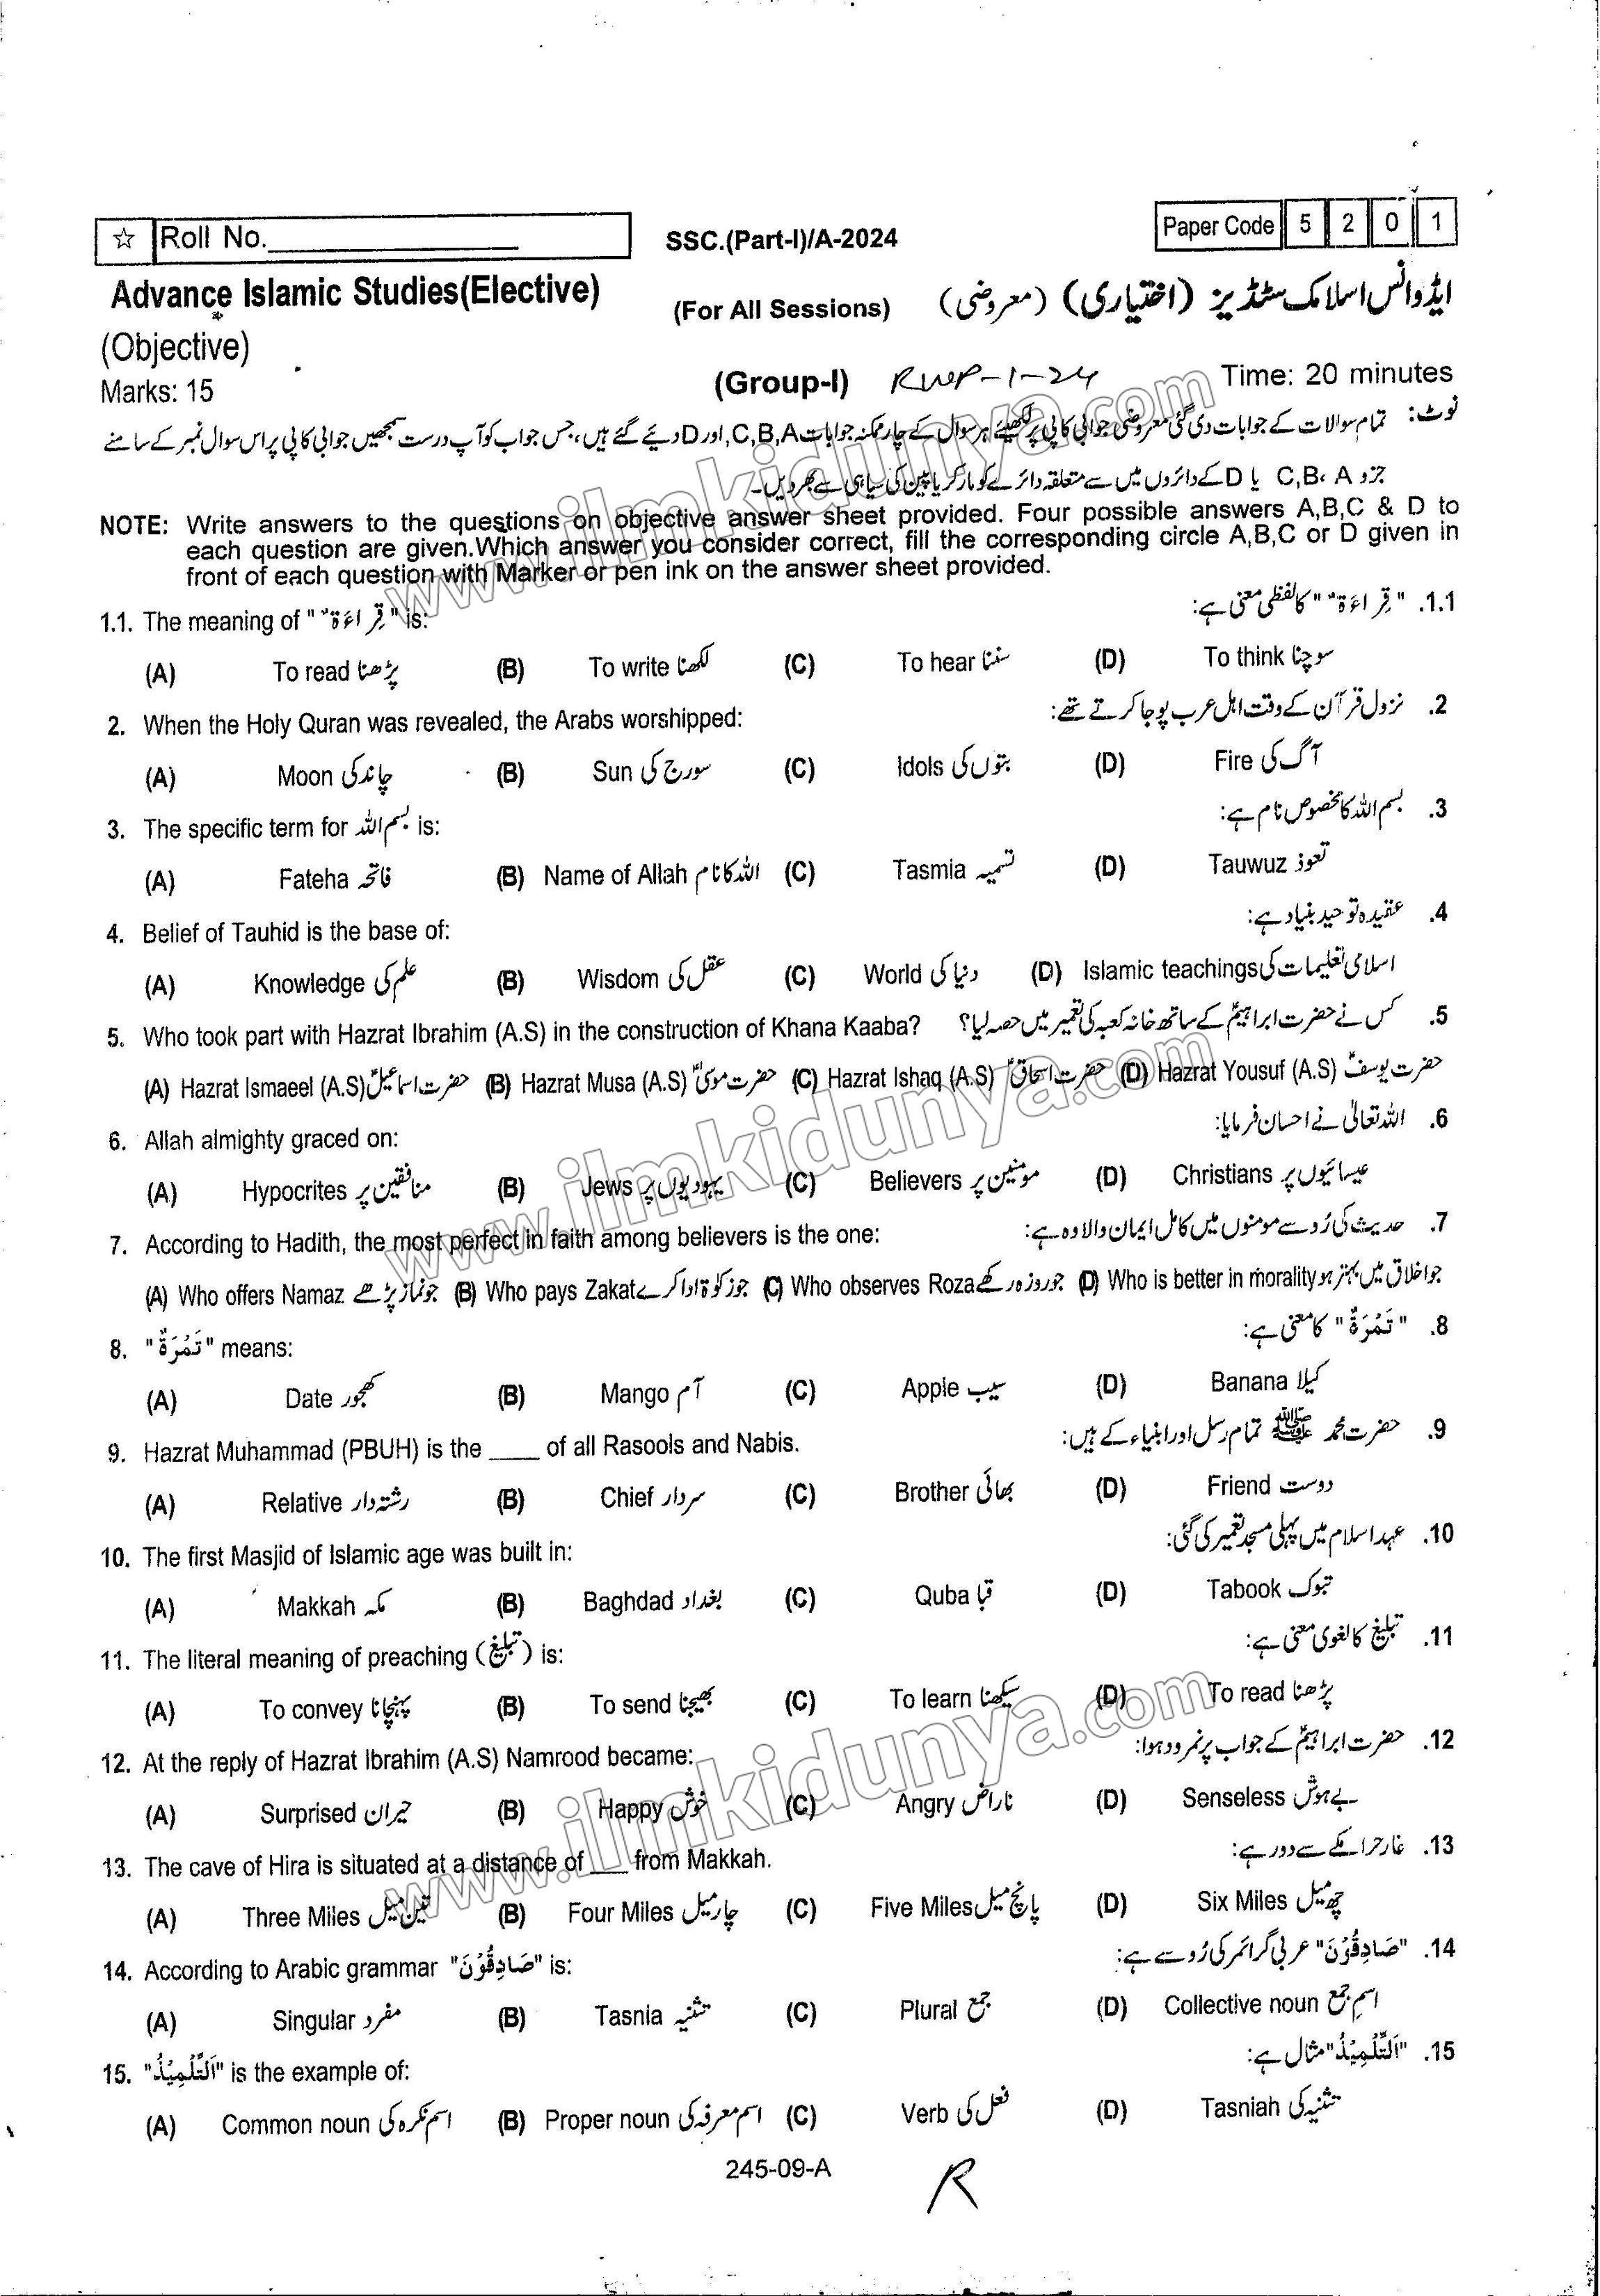 ☆ Roll No.____________ SSC.(Part-I)/A-2024 Paper Code 5 2 0 1
Advance Islamic Studies(Elective) (For All Sessions) ایڈوانس اسلامک سٹڈیز (اختیاری) (معروضی)
(Objective)
Marks: 15 (Group-I) RWP-1-24 Time: 20 minutes
نوٹ: تمام سوالات کے جوابات دی گئی معروضی جوابی کاپی پر لکھیئے ہر سوال کے چار ممکنہ جوابات A,B,C اور D دیئے گئے ہیں، جس جواب کو آپ درست سمجھیں جوابی کاپی پر اس سوال نمبر کے سامنے
جزو A ،B،C یا D کے دائروں میں سے متعلقہ دائرے کو مارکر یا پین کی سیاہی سے بھر دیں۔
NOTE: Write answers to the questions on objective answer sheet provided. Four possible answers A,B,C & D to
each question are given.Which answer you consider correct, fill the corresponding circle A,B,C or D given in
front of each question with Marker or pen ink on the answer sheet provided.
1.1. The meaning of "قِرَاءَۃٌ" is: 1.1. "قِرَاءَۃٌ" کا لفظی معنی ہے:
(A) To read پڑھنا (B) To write لکھنا (C) To hear سننا (D) To think سوچنا
2. When the Holy Quran was revealed, the Arabs worshipped: 2. نزول قرآن کے وقت اہل عرب پوجا کرتے تھے:
(A) Moon چاند کی (B) Sun سورج کی (C) Idols بتوں کی (D) Fire آگ کی
3. The specific term for بسم اللہ is: 3. بسم اللہ کا مخصوص نام ہے:
(A) Fateha فاتحہ (B) Name of Allah اللہ کا نام (C) Tasmia تسمیہ (D) Tauwuz تعوذ
4. Belief of Tauhid is the base of: 4. عقیدہ توحید بنیاد ہے:
(A) Knowledge علم کی (B) Wisdom عقل کی (C) World دنیا کی (D) Islamic teachings اسلامی تعلیمات کی
5. Who took part with Hazrat Ibrahim (A.S) in the construction of Khana Kaaba? 5. کس نے حضرت ابراہیمؑ کے ساتھ خانہ کعبہ کی تعمیر میں حصہ لیا؟
(A) Hazrat Ismaeel (A.S) حضرت اسماعیلؑ (B) Hazrat Musa (A.S) حضرت موسیٰؑ (C) Hazrat Ishaq (A.S) حضرت اسحاقؑ (D) Hazrat Yousuf (A.S) حضرت یوسفؑ
6. Allah almighty graced on: 6. اللہ تعالیٰ نے احسان فرمایا:
(A) Hypocrites منافقین پر (B) Jews یہودیوں پر (C) Believers مومنین پر (D) Christians عیسائیوں پر
7. According to Hadith, the most perfect in faith among believers is the one: 7. حدیث کی رُو سے مومنوں میں کامل ایمان والا وہ ہے:
(A) Who offers Namaz جو نماز پڑھے (B) Who pays Zakat جو زکوٰۃ ادا کرے (C) Who observes Roza جو روزہ رکھے (D) Who is better in morality جو اخلاق میں بہتر ہو
8. "تَمْرَۃٌ" means: 8. "تَمْرَۃٌ" کا معنی ہے:
(A) Date کھجور (B) Mango آم (C) Apple سیب (D) Banana کیلا
9. Hazrat Muhammad (PBUH) is the ____ of all Rasools and Nabis. 9. حضرت محمد ﷺ تمام رسل اور انبیاء کے ہیں:
(A) Relative رشتہ دار (B) Chief سردار (C) Brother بھائی (D) Friend دوست
10. The first Masjid of Islamic age was built in: 10. عہد اسلام میں پہلی مسجد تعمیر کی گئی:
(A) Makkah مکہ (B) Baghdad بغداد (C) Quba قبا (D) Tabook تبوک
11. The literal meaning of preaching (تبلیغ) is: 11. تبلیغ کا لغوی معنی ہے:
(A) To convey پہنچانا (B) To send بھیجنا (C) To learn سیکھنا (D) To read پڑھنا
12. At the reply of Hazrat Ibrahim (A.S) Namrood became: 12. حضرت ابراہیمؑ کے جواب پر نمرود ہوا:
(A) Surprised حیران (B) Happy خوش (C) Angry ناراض (D) Senseless بے ہوش
13. The cave of Hira is situated at a distance of ___ from Makkah. 13. غار حرا مکے سے دور ہے:
(A) Three Miles تین میل (B) Four Miles چار میل (C) Five Miles پانچ میل (D) Six Miles چھ میل
14. According to Arabic grammar "صَادِقُوْنَ" is: 14. "صَادِقُوْنَ" عربی گرائمر کی رُو سے ہے:
(A) Singular مفرد (B) Tasnia تثنیہ (C) Plural جمع (D) Collective noun اسم جمع
15. "اَلتِّلْمِیْذُ" is the example of: 15. "اَلتِّلْمِیْذُ" مثال ہے:
(A) Common noun اسم نکرہ کی (B) Proper noun اسم معرفہ کی (C) Verb فعل کی (D) Tasniah تثنیہ کی
245-09-A R
www.ilmkidunya.com
www.ilmkidunya.com
www.ilmkidunya.com